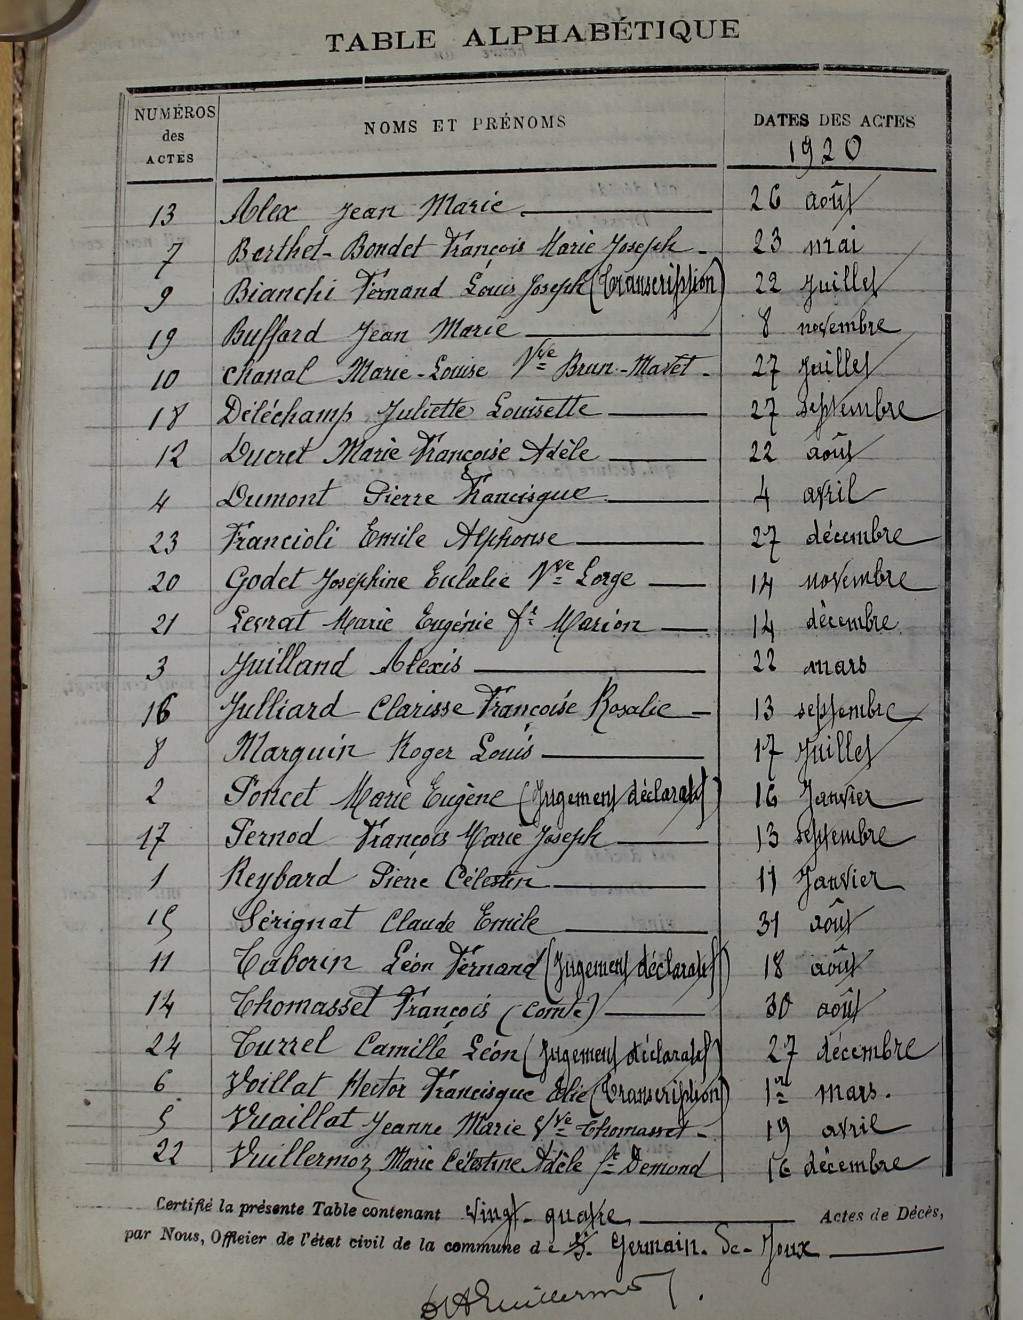 TABLE ALPHABÉTIQUE
NUMÉROS des ACTES NOMS ET PRÉNOMS DATES DES ACTES 1920
13 Alex Jean Marie 26 août
7 Berthet-Bondet François Marie Joseph 23 mai
9 Bianchi Fernand Louis Joseph (Transcription) 22 Juillet
19 Buffard Jean Marie 8 novembre
10 Chanal Marie-Louise Vve Brun-Mavet 27 Juillet
18 Déléchamp Juliette Louisette 27 septembre
12 Ducret Marie Françoise Adèle 22 août
4 Dumont Pierre Francisque 4 avril
23 Francioli Emile Alphonse 27 décembre
20 Godet Joséphine Eulalie Vve Lorge 14 novembre
21 Levrat Marie Eugénie fe Marion 14 décembre
3 Juilland Alexis 22 mars
16 Julliard Clarisse Françoise Rosalie 13 septembre
8 Marguin Roger Louis 17 Juillet
2 Poncet Marie Eugène (Jugement déclaratif) 16 Janvier
17 Pernod François Marie Joseph 13 septembre
1 Reybard Pierre Célestin 11 Janvier
15 Sérignat Claude Emile 31 août
11 Taborin Léon Fernand (Jugement déclaratif) 18 août
14 Thomasset François (Comte) 30 août
24 Turrel Camille Léon (Jugement déclaratif) 27 décembre
6 Voillat Hector Francisque Elie (Transcription) 1er mars.
5 Vuaillat Jeanne Marie Vve Thomasset 19 avril
22 Vuillermoz Marie Célestine Adèle fe Demond 16 décembre
Certifié la présente Table contenant vingt-quatre Actes de Décès,
par Nous, Officier de l'état civil de la commune de St. Germain-de-Joux
Vuillermoz